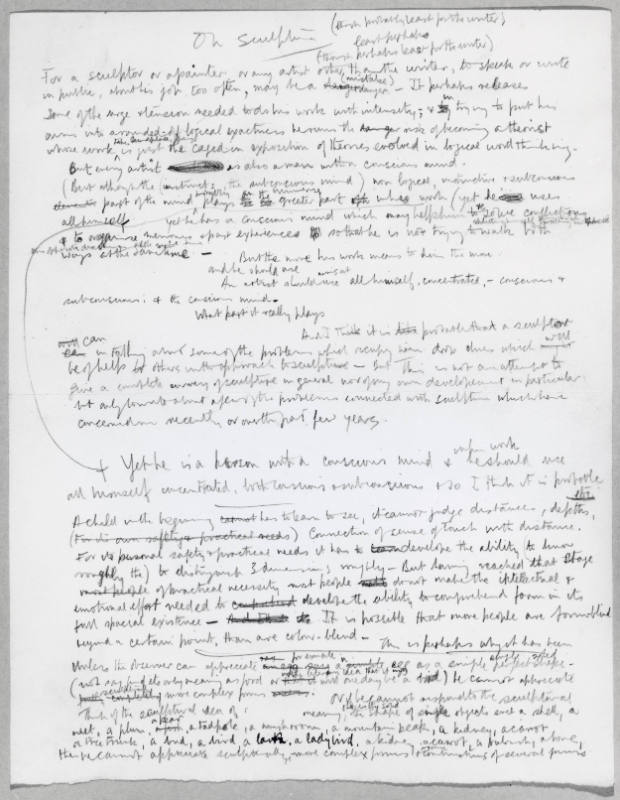 On Sculpture
(though probably least for the writer)
least perhaps
(though perhaps least for the writer)
For a sculptor or a painter, or any artist other than the writer, to speak or write
in public, about his job too often, may be a danger (mistake) – It perhaps releases
some of the urge & tension needed to do his work with intensity; & by trying to put his
aims into a rounded-off logical exactness he runs the danger risk of becoming a theorist
whose work is just the caged in exposition of theories evolved in logical word thinking.
But every artist as also a man with a conscious mind.
(But although the (instinct; the subconscious mind) non logical, instinctive & subconscious
part of the mind plays the greater part work (yet he uses
all himself yet he has a conscious mind which may help him to solve conflictions
& to organise memories & past experiences so that he is not trying to walk both
ways at the same time –
But the more his work means to him the more
and he should use
An artist should use all himself, concentrated, – conscious &
subconscious: & the conscious mind –
What part it really plays
And I think it is probable that a sculptor
can in talking about some of the problems which occupy him drop clues which will
be of help to others in the approach to sculpture – But this is not an attempt to
give a complete survey of sculpture in general nor of my own development in particular
but only to write about a few of the problems connected with sculpture which have
concerned me recently or over the past few years.
+ Yet he is a person with a conscious mind & work he should use
all himself concentrated, both conscious & subconscious & so I think it is probable
A child in the beginning has to learn to see, it cannot judge distances, depths,
(For its own safety & practical needs) Connection of sense of touch with distance.
For its personal safety & practical needs it has to develop the ability (to know
roughly the) to distinguish 3 dimensions roughly – But having reached that stage
of practical necessity most people do not make the intellectual &
emotional effort needed to develop the ability to comprehend form in its
full spacial existence – It is possible that more people are formblind
beyond a certain point, than are colour-blind – This is perhaps why it has been
Unless the observer can appreciate for example an egg as a simple perfect shape –
(and not only meaning as food or will one day be a bird) he cannot appreciate
more complex forms
Think of the sculptural idea of: or if he cannot respond to the sculptural
meaning, the shape of single objects such a shell, a
nut, a plum, a pear, a tadpole, a mushroom, a mountain peak, a kidney, a carrot
a tree trunk, a bud, a bird, a lark, a ladybird, a kidney, a carrot, a bulrush, a bone,
then he cannot appreciate sculpturally, more complex forms & combinations of several forms